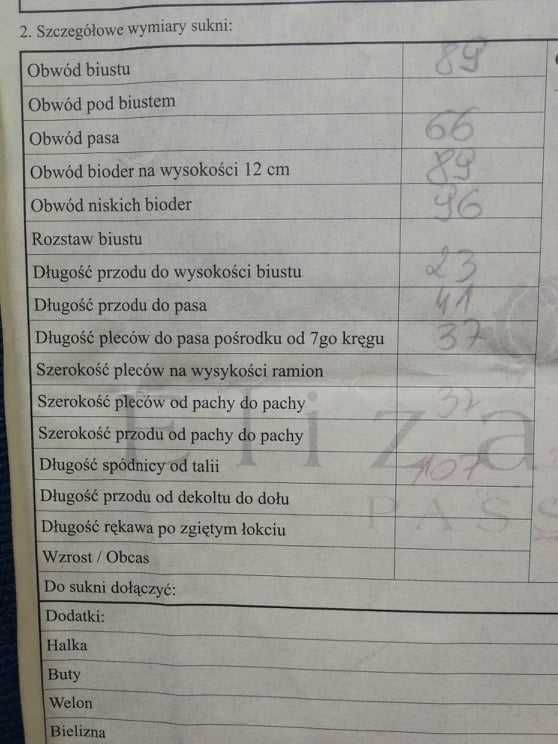 2. Szczegółowe wymiary sukni:
Obwód biustu 89
Obwód pod biustem
Obwód pasa 66
Obwód bioder na wysokości 12 cm 89
Obwód niskich bioder 96
Rozstaw biustu
Długość przodu do wysokości biustu 23
Długość przodu do pasa 41
Długość pleców do pasa pośrodku od 7go kręgu 37
Szerokość pleców na wysykości ramion
Szerokość pleców od pachy do pachy 32
Szerokość przodu od pachy do pachy
Długość spódnicy od talii 107
Długość przodu od dekoltu do dołu
Długość rękawa po zgiętym łokciu
Wzrost / Obcas
Do sukni dołączyć:
Dodatki:
Halka
Buty
Welon
Bielizna
Eliza
PASS